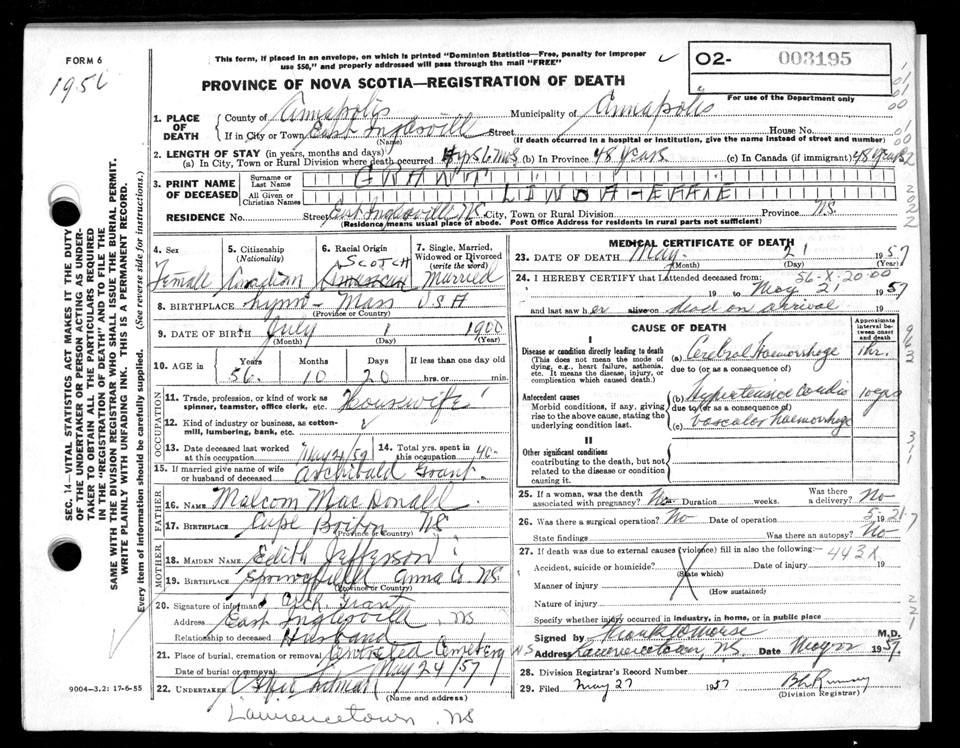 FORM 6
This form, if placed in an envelope, on which is printed "Dominion Statistics—Free, penalty for improper
use $50," and properly addressed will pass through the mail "FREE"
O2- 003195
PROVINCE OF NOVA SCOTIA—REGISTRATION OF DEATH
For use of the Department only
1. PLACE OF DEATH
County of Annapolis Municipality of Annapolis
If in City or Town East Inglesville Street House No.
(Name) (If death occurred in a hospital or institution, give the name instead of street and number)
2. LENGTH OF STAY (in years, months and days)
(a) In City, Town or Rural Division where death occurred 4 yrs 6 mos (b) In Province 48 years (c) In Canada (if immigrant) 48 years
3. PRINT NAME OF DECEASED
Surname or Last Name GRANT
All Given or Christian Names LINDA-EFFIE
RESIDENCE No. Street East Inglesville NS City, Town or Rural Division Province NS.
(Residence means usual place of abode. Post Office Address for residents in rural parts not sufficient)
4. Sex Female
5. Citizenship (Nationality) Canadian
6. Racial Origin SCOTCH
7. Single, Married, Widowed or Divorced (write the word) Married
8. BIRTHPLACE Lynn - Mass USA
(Province or Country)
9. DATE OF BIRTH July 1 1900
(Month) (Day) (Year)
10. AGE in Years 56 Months 10 Days 20 If less than one day old hrs. or min.
OCCUPATION
11. Trade, profession, or kind of work as spinner, teamster, office clerk, etc. Housewife
12. Kind of industry or business, as cotton-mill, lumbering, bank, etc.
13. Date deceased last worked at this occupation May 21/57 14. Total yrs. spent in this occupation 40
15. If married give name of wife or husband of deceased Archibald Grant
FATHER
16. NAME Malcom MacDonald
17. BIRTHPLACE Cape Breton NS
(Province or Country)
MOTHER
18. MAIDEN NAME Edith Jefferson
19. BIRTHPLACE Springfield Anna Co. NS.
(Province or Country)
20. Signature of informant Arch. Grant
Address East Inglesville, NS
Relationship to deceased Husband
21. Place of burial, cremation or removal Cemetery NS
Date of burial or removal May 24/57
22. UNDERTAKER
(Name and address)
Lawrencetown, NS
9004-3.2: 17-6-55
MEDICAL CERTIFICATE OF DEATH
23. DATE OF DEATH May 21 1957
(Month) (Day) (Year)
56-X-20-00
24. I HEREBY CERTIFY that I attended deceased from:
19 to May 21 1957
and last saw her alive on dead on arrival 19
CAUSE OF DEATH
Approximate interval between onset and death
I
Disease or condition directly leading to death
(This does not mean the mode of dying, e.g., heart failure, asthenia, etc. It means the disease, injury, or complication which caused death.)
(a) Cerebral Haemorrhage 1 hr.
due to (or as a consequence of)
Antecedent causes
Morbid conditions, if any, giving rise to the above cause, stating the underlying condition last.
(b) Hypertensive Cardio 10 yrs
due to (or as a consequence of)
(c) vascular haemorrhage
II
Other significant conditions
contributing to the death, but not related to the disease or condition causing it.
25. If a woman, was the death associated with pregnancy? No Duration weeks. Was there a delivery? No
26. Was there surgical operation? No Date of operation 19
State findings Was there an autopsy? No
27. If death was due to external causes (violence) fill in also the following: 443X
Accident, suicide or homicide? Date of injury 19
(State which)
Manner of injury
(How sustained)
Nature of injury
Specify whether injury occurred in industry, in home, or in public place
Signed by Frank Morse M.D.
Address Lawrencetown, NS. Date May 1957.
28. Division Registrar's Record Number
29. Filed May 27 1957
(Division Registrar)
SEC. 14—VITAL STATISTICS ACT MAKES IT THE DUTY
OF THE UNDERTAKER OR PERSON ACTING AS UNDER-
TAKER TO OBTAIN ALL THE PARTICULARS REQUIRED
IN THE "REGISTRATION OF DEATH" AND TO FILE THE
SAME WITH THE DIVISION REGISTRAR WHO SHALL ISSUE THE BURIAL PERMIT.
WRITE PLAINLY WITH UNFADING INK. THIS IS A PERMANENT RECORD.
Every item of information should be carefully supplied. (See reverse side for instructions.)